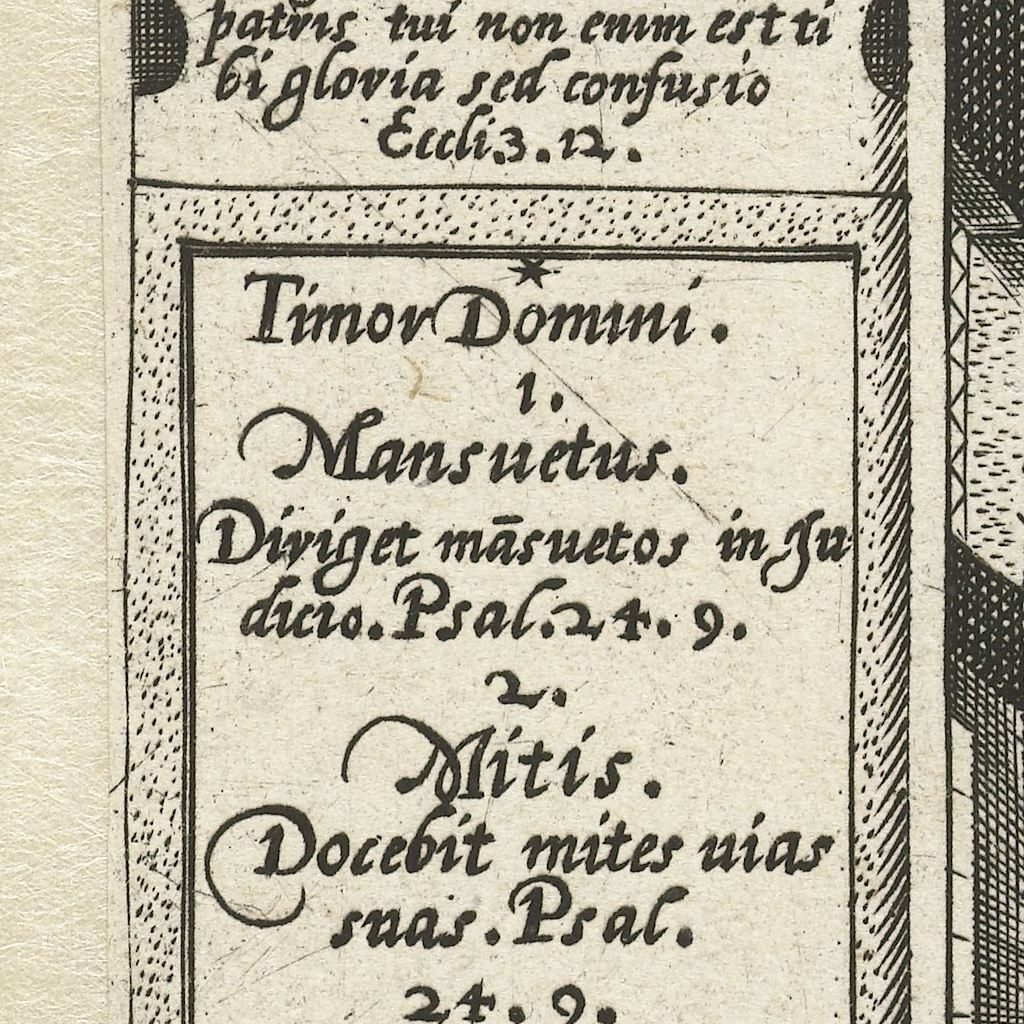 patris tui non enim est ti
bi gloria sed confusio
Eccli.3.12.
Timor Domini.
1.
Mansuetus.
Diriget māsuetos in Ju
dicio. Psal. 24. 9.
2.
Mitis.
Docebit mites uias
suas. Psal.
24. 9.